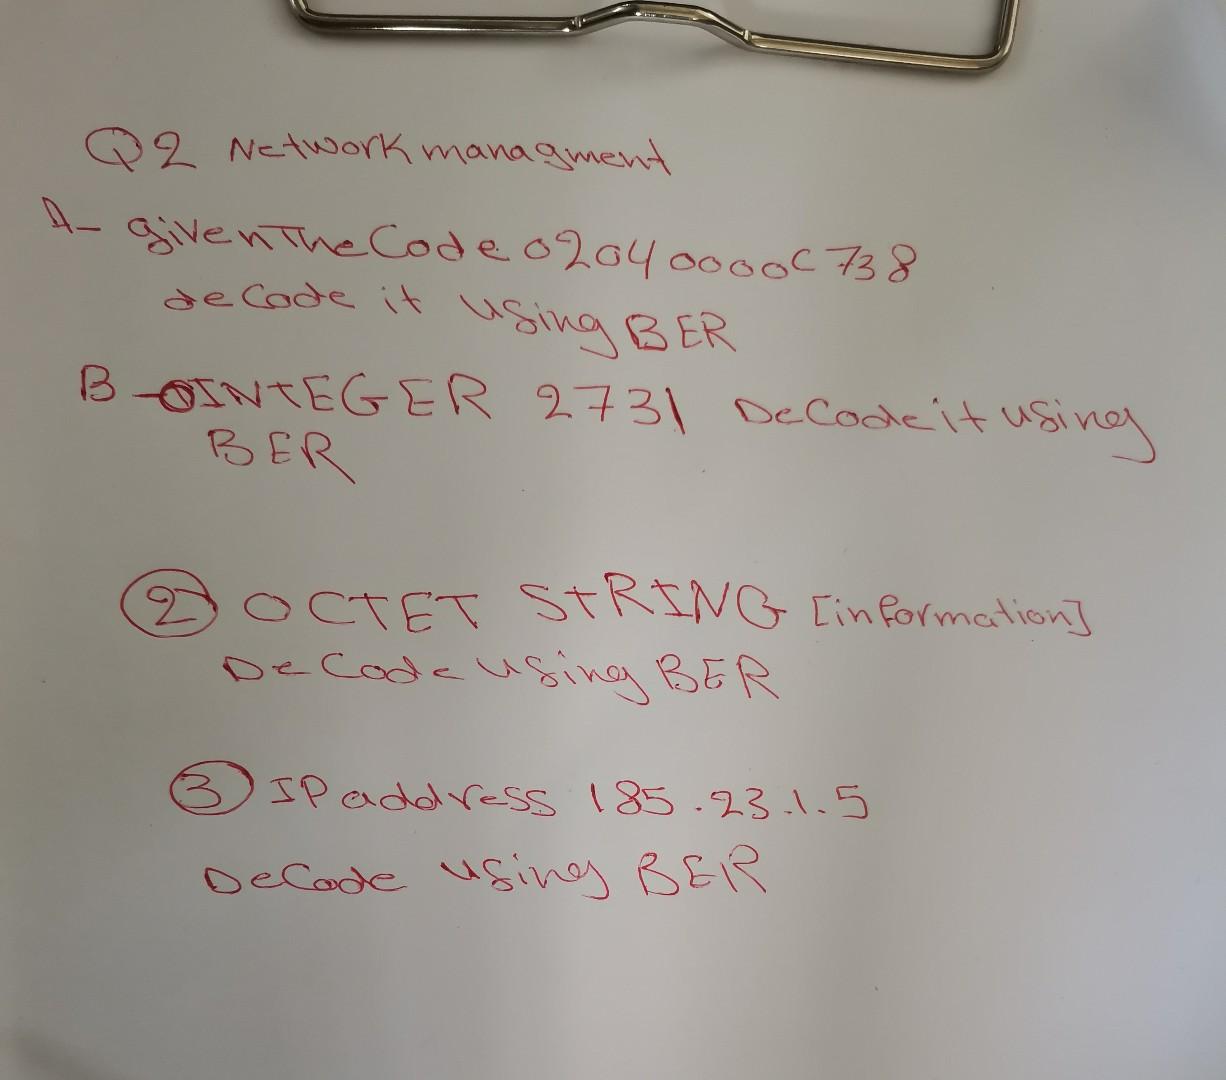 Q2 Network managment
A- given The Code 02040000C738
decode it using BER
B-①INtEGER 2731 Decode it using
BER
② OCTET StRING [information]
Decode using BER
③ IP address 185.23.1.5
Decode using BER